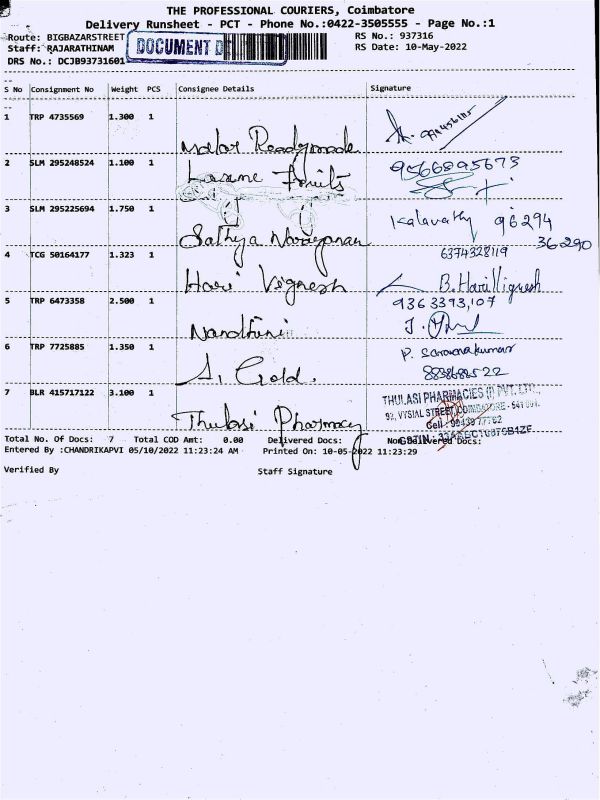 THE PROFESSIONAL COURIERS, Coimbatore
Delivery Runsheet - PCT - Phone No.:0422-3505555 - Page No.:1
Route: BIGBAZARSTREET RS No.: 937316
Staff: RAJARATHINAM DOCUMENT RS Date: 10-May-2022
DRS No.: DCJB93731601
S No Consignment No Weight PCS Consignee Details Signature
1 TRP 4735569 1.300 1 Malar Readymade
2 SLM 295248524 1.100 1 Laxme Fruits 9566895673
3 SLM 295225694 1.750 1 Sathya Narayanan Kalavathy 96294
36290
4 TCG 50164177 1.323 1 Hari Vignesh 6374328119
B. Harillignesh
5 TRP 6473358 2.500 1 Nandhini 9363393,107
6 TRP 7725885 1.350 1 A, Gold. P. Saravanakumar
7 BLR 415717122 3.100 1 Thulasi Pharmacy THULASI PHARMACIES (I) PVT. LTD.,
92, VYSIAL STREET, COIMBATORE - 641 001.
Cell : 99439 77762
GSTIN :
Total No. Of Docs: 7 Total COD Amt: 0.00 Delivered Docs: Non Delivered Docs:
Entered By :CHANDRIKAPVI 05/10/2022 11:23:24 AM Printed On: 10-05-2022 11:23:29
Verified By Staff Signature